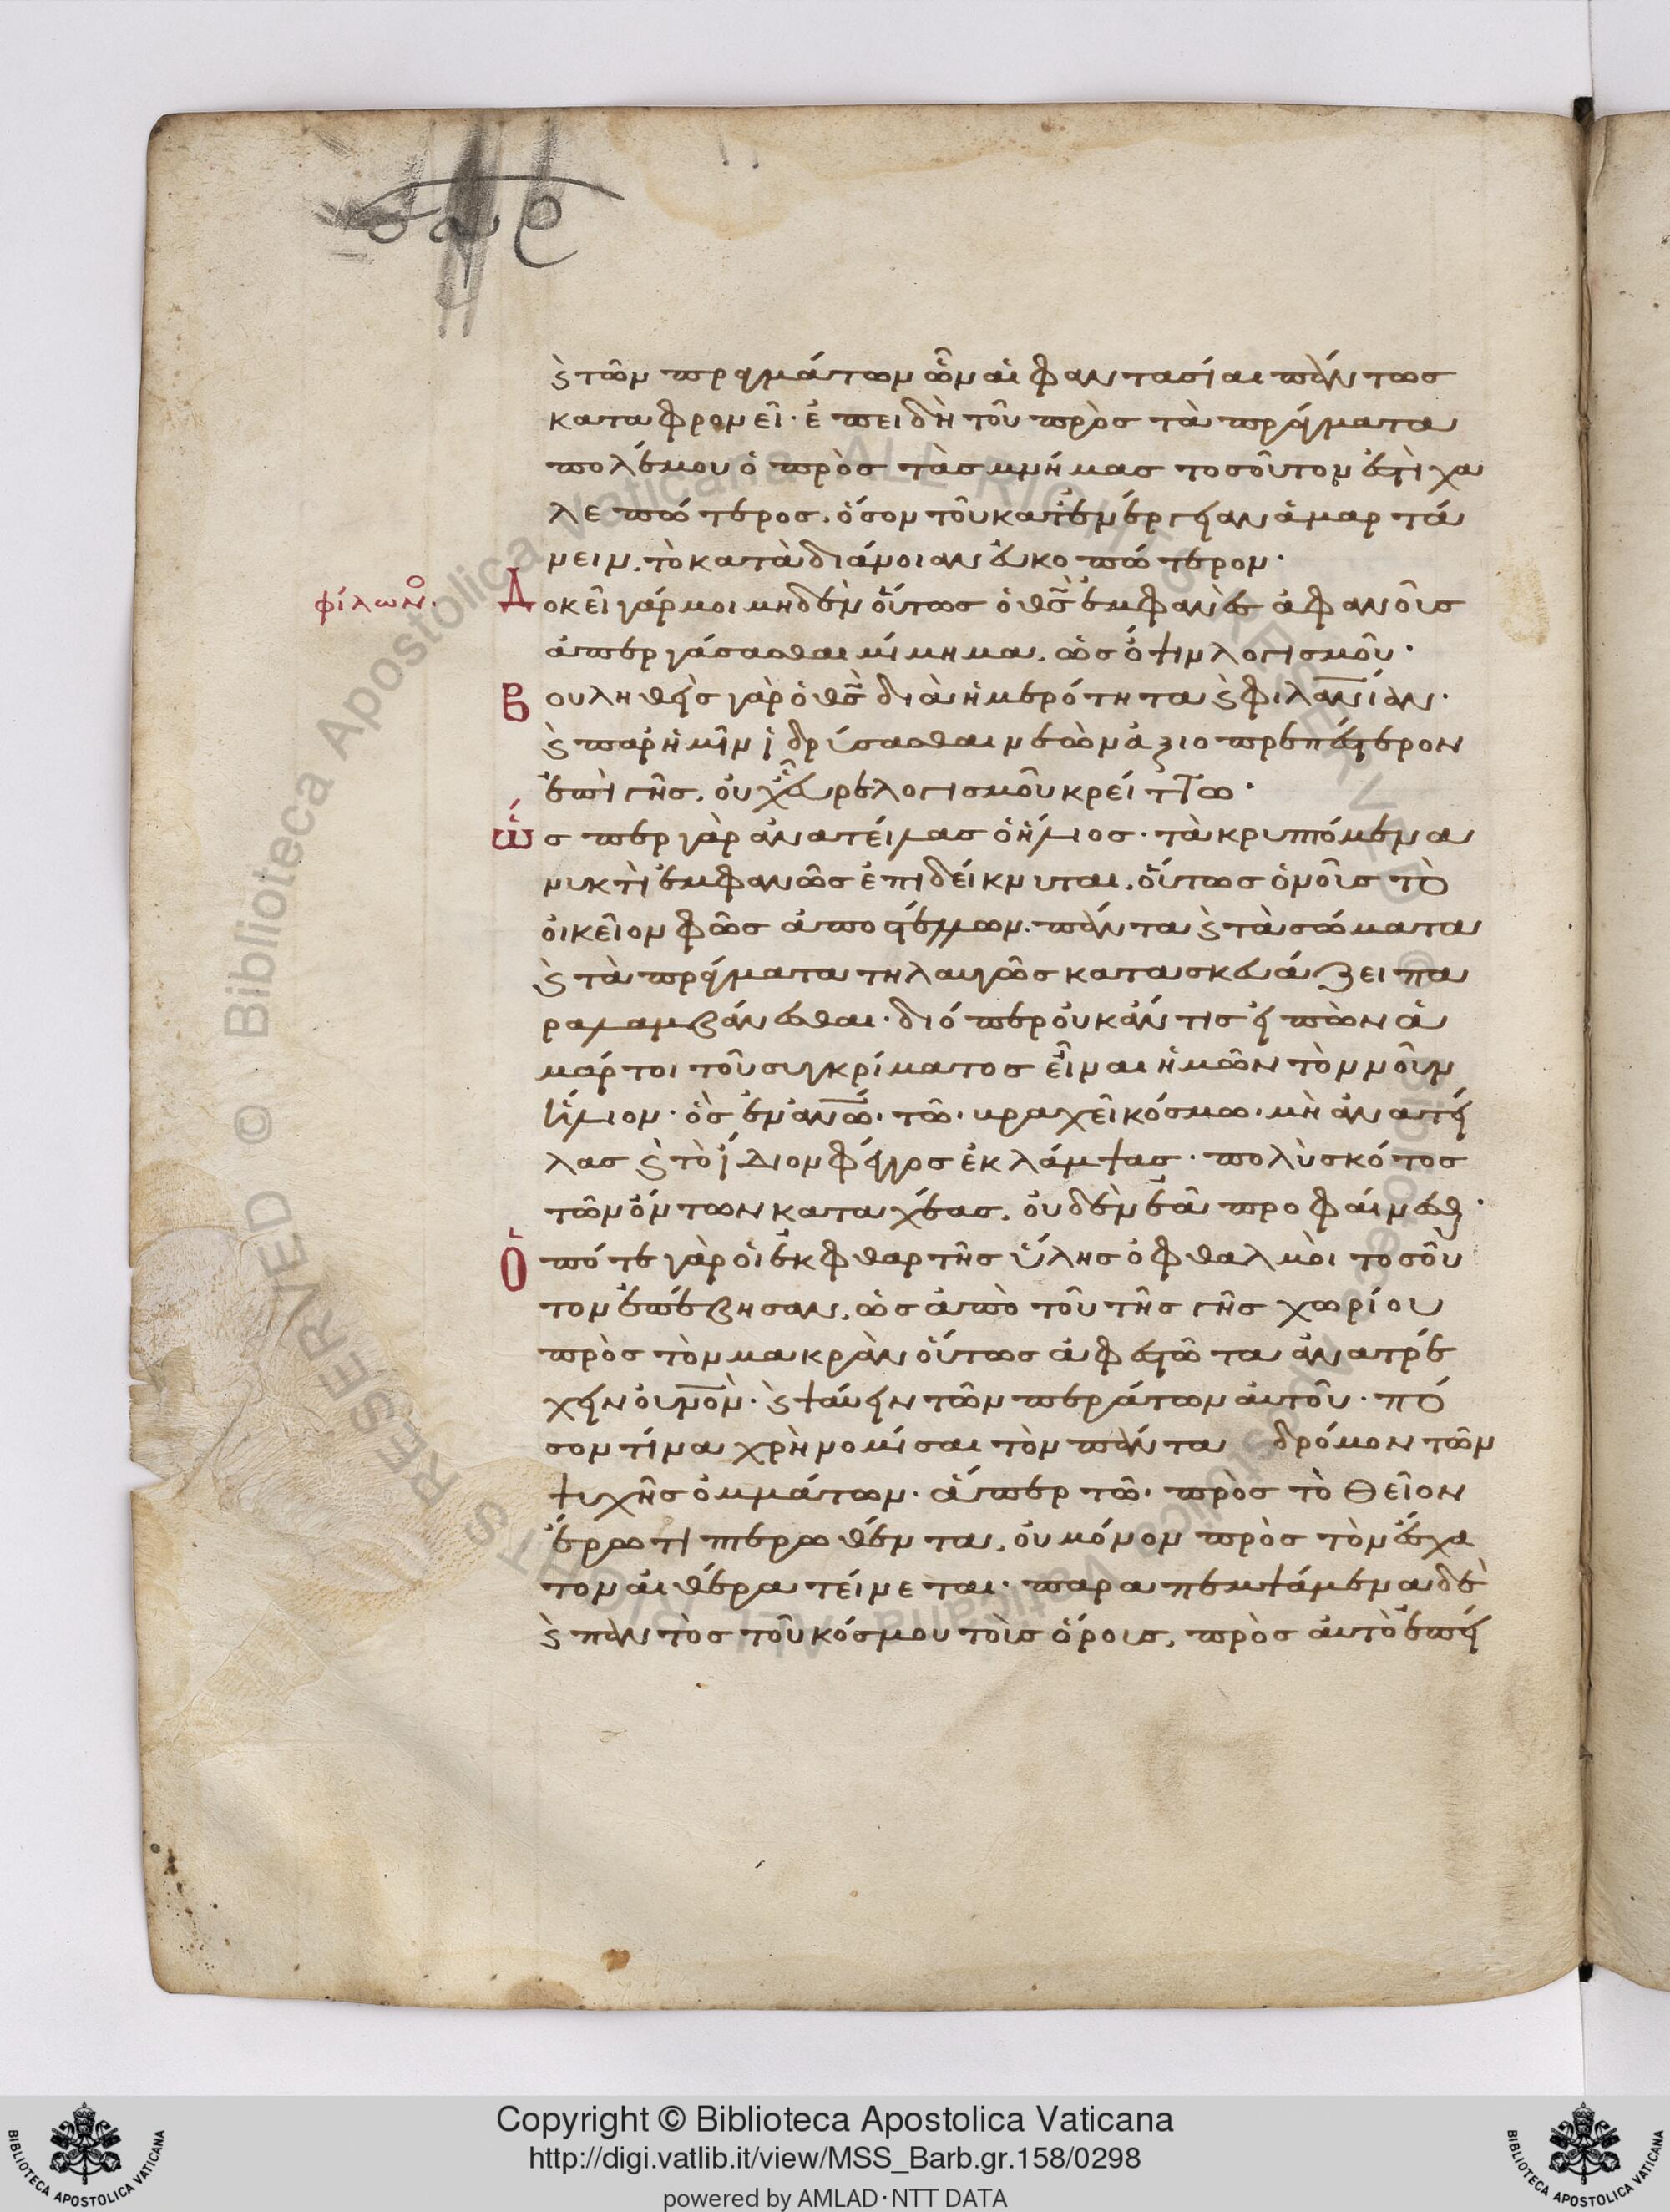 ϗ τῶν πραγμάτων ὧν αἱ φαντασίαι πάντως
καταφρονεῖ· ἐπειδὴ τοῦ πρὸς τὰ πράγματα
πολέμου ὁ πρὸς τὰς μνήμας τοσοῦτον ἐστὶ χα
λεπώτερος, ὅσον τοῦ κατ' ἐνέργειαν ἁμαρτά
νειν, τὸ κατὰ διάνοιαν εὐκοπώτερον·
φίλωνος.
Δοκεῖ γάρ μοι μηδὲν οὕτως ὁ θς̅ ἐμφανὲς ἀφανοῦς
ἀπεργάσασθαι μίμημα, ὡς ὄψιν λογισμοῦ·
Βουληθεὶς γὰρ ὁ θς̅ διὰ ἡμερότητα ϗ φιλανίαν·
ϗ παρ' ἡμῖν ἱδρύσασθαι νεὼν ἀξιοπρεπέστερον
ἐπὶ γῆς, οὐχ εὗρε λογισμοῦ κρείττω·
Ὥσπερ γὰρ ἀνατείλας ὁ ἥλιος· τὰ κρυπτόμενα
νυκτὶ ἐμφανῶς ἐπιδείκνυται, οὕτως ὁ νοῦς τὸ
οἰκεῖον φῶς ἀπο πάντα ϗ τὰ σώματα
ϗ τὰ πράγματα τηλαυγῶς κατασκευάζει πα
ραλαμβάνεσθαι· διόπερ οὐκ ἄν τις εἰπὼν ἁ
μάρτοι τοῦ συγκρίματος εἶναι ἡμῶν τὸν νοῦν
ἥλιον· ὃς ἐν ἀνω̅· τῶ· βραχεῖ κόσμω· μὴ ἀνατεί
λας ϗ τὸ ἴδιον φέγγος ἐκλάμψας· πολὺ σκότος
τῶν ὄντων καταχέας, οὐδὲν ἐᾶ προφαίνεσθ·
Ὁπότε γὰρ οἱ ἐκ φθαρτῆς ὕλης ὀφθαλμοὶ τοσοῦ
τον ἐπέβησαν, ὡς ἀπὸ τοῦ τῆς γῆς χωρίου
πρὸς τὸν μακρὰν οὕτως ἀφεστῶτα ἀνατρέ
χειν οὐνον̅· ϗ ψαύειν τῶν περάτων αὐτοῦ· πό
σον τίνα χρὴ νομίσαι τὸν πάντα δρόμον τῶν
ψυχῆς ὀμμάτων· ἅπερ τῶ· πρὸς τὸ θεῖον
ἔρωτι πτερωθέντα, οὐ μόνον πρὸς τὸν ἔσχα
τον αἰθέρα τείνεται· παραπεμψάμενα δὲ
ϗ παντὸς τοῦ κόσμου τοὺς ὅρους, πρὸς αὐτὸ ἐπεί
Copyright © Biblioteca Apostolica Vaticana
http://digi.vatlib.it/view/MSS_Barb.gr.158/0298
powered by AMLAD·NTT DATA
BIBLIOTECA APOSTOLICA VATICANA
BIBLIOTECA APOSTOLICA VATICANA